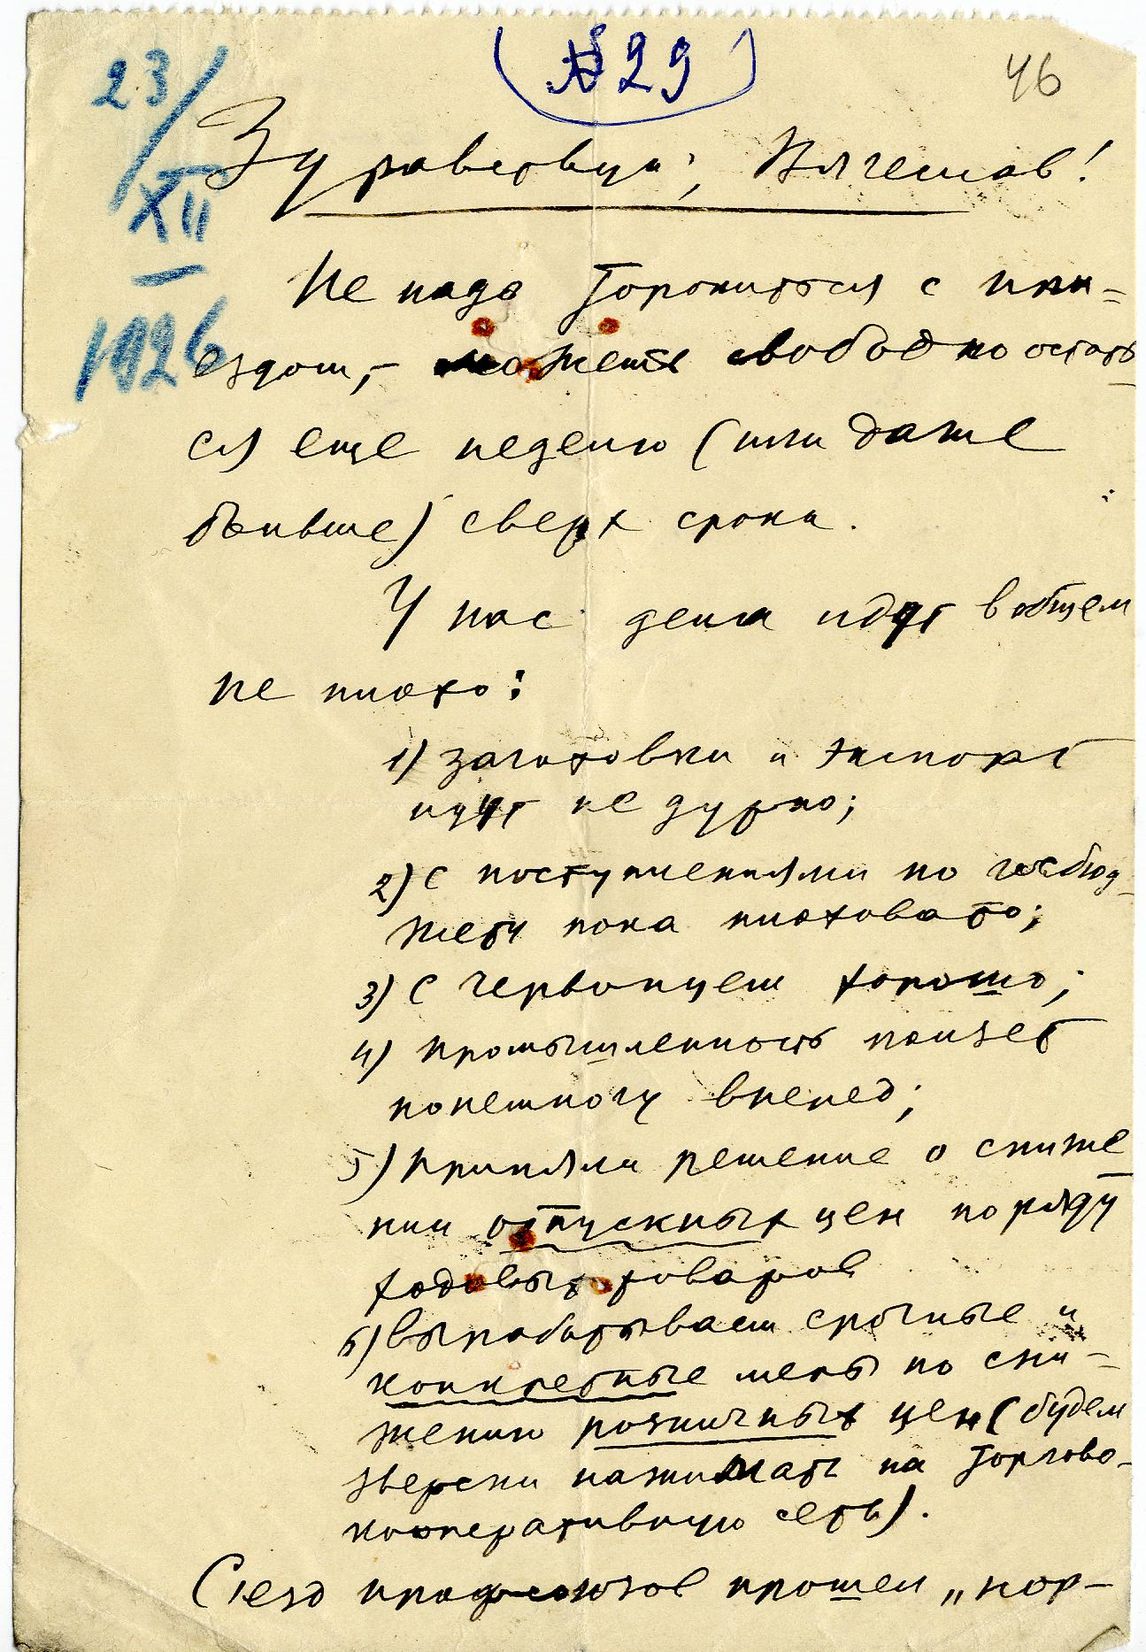 (№ 29)
46
23/XII
1926
Здравствуй, Вячеслав!
Не надо торопиться с при-
ездом, – можешь свободно остать-
ся еще неделю (или даже
больше) сверх срока.
У нас дела идут в общем
не плохо:
1) заготовки и экспорт
идут не дурно;
2) с поступлениями по госбюд-
жету пока плоховато;
3) с червонцем хорошо;
4) промышленность ползет
понемногу вперед;
5) приняли решение о сниже-
нии отпускных цен по ряду
ходовых товаров
6) вырабатываем срочные и
конкретные меры по сни-
жению розничных цен (будем
зверски нажимать на торгово-
кооперативную сеть).
Съезд профсоюзов прошел „нор-